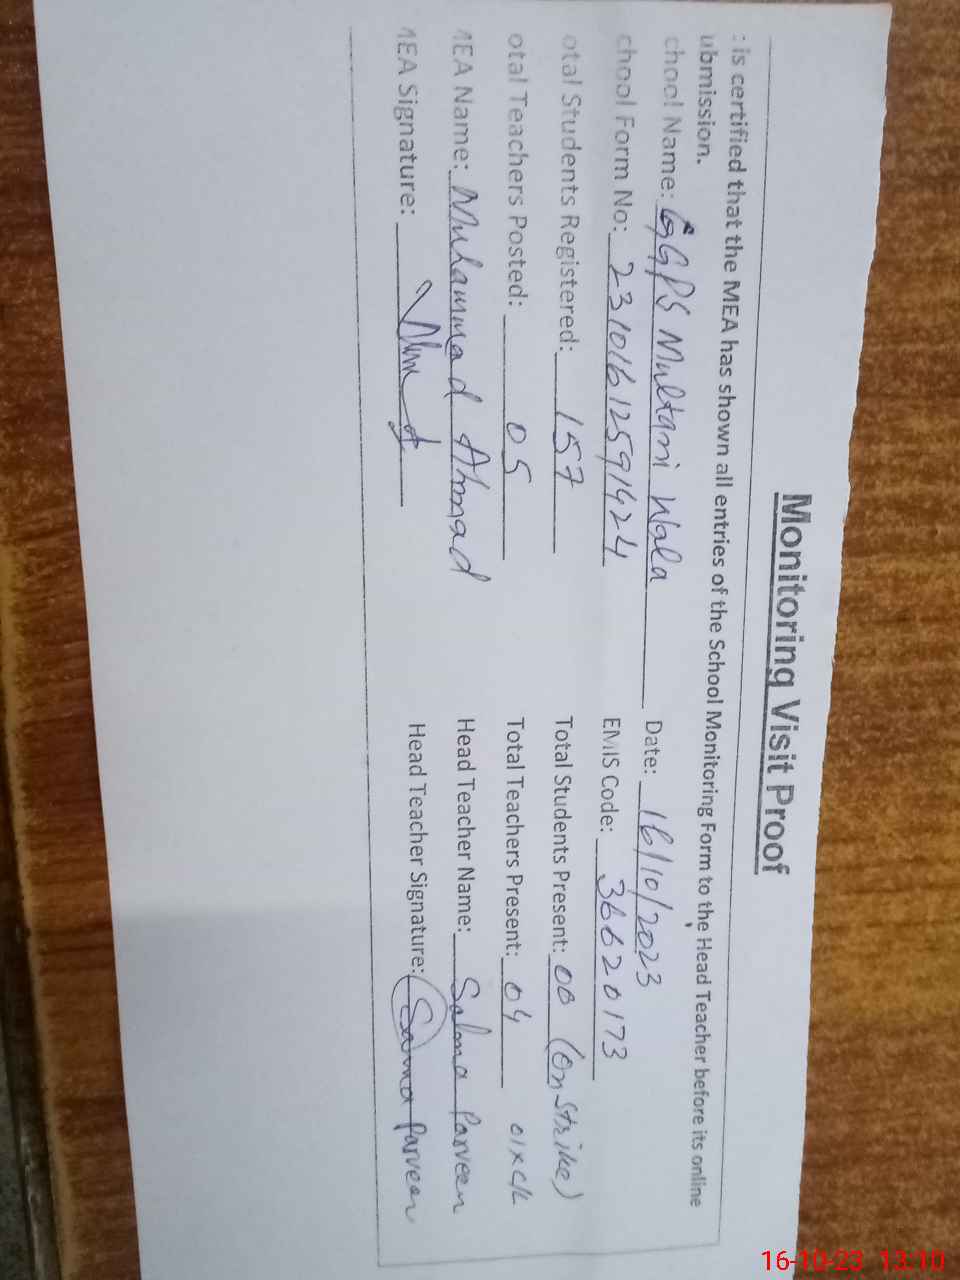 Monitoring Visit Proof
: is certified that the MEA has shown all entries of the School Monitoring Form to the Head Teacher before its online
ubmission.
chool Name: GGPS Multani Wala Date: 16/10/2023
chool Form No: 23101612591424 EMIS Code: 36620173
otal Students Registered: 157 Total Students Present: 00 (On Strike)
otal Teachers Posted: 05 Total Teachers Present: 04 01xC/L
MEA Name: Muhammad Ahmad Head Teacher Name: Salma Parveen
MEA Signature: Head Teacher Signature: Salma Parveen
16-10-23 13:10